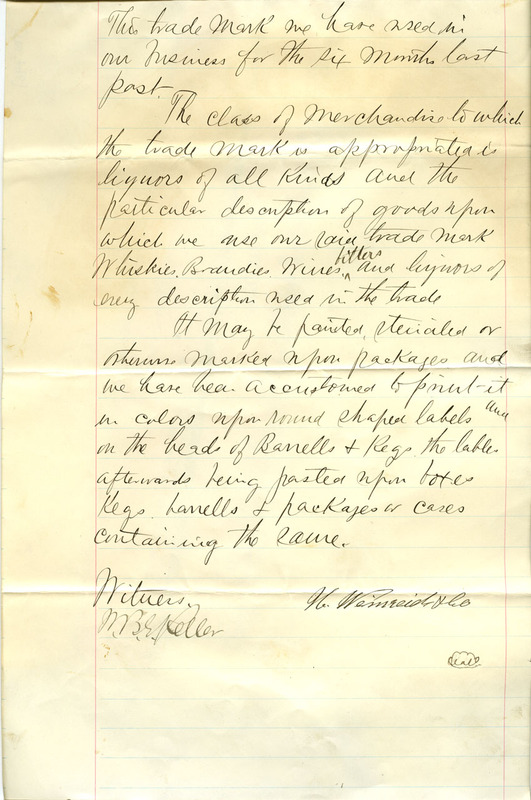 This trade Mark we have used in
our business for the six Months last
past.
The class of Merchandise to which
the trade Mark is appropriated is
liquors of all Kinds and the
particular description of goods upon
which we use our said trade mark
Whiskies, Brandies, Wines, bitters and liquors of
every description used in the trade
It May be painted, stenciled or
otherwise Marked upon packages and
we have been accustomed to print it
in colors upon round shaped labels and
on the heads of Barrells & Kegs the lables
afterwards being pasted upon boxes
Kegs, barrells & packages or cases
containing the same.
Witness,
& Co
Keller